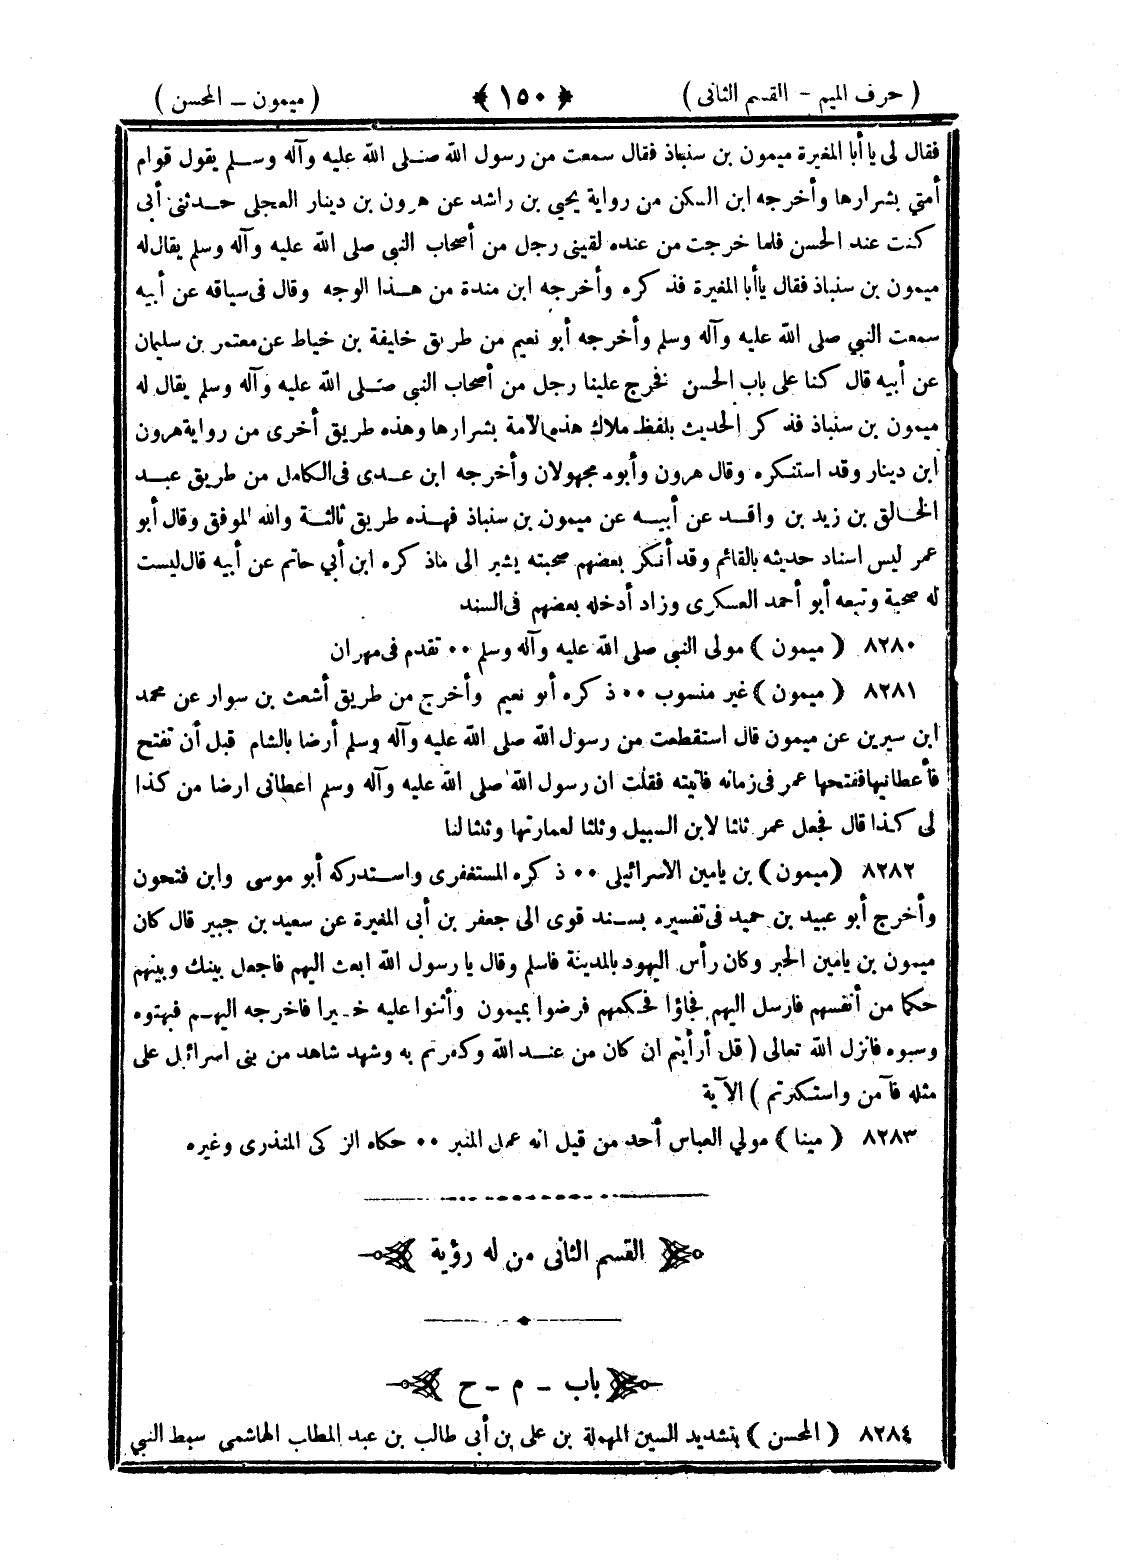 ( حرف الميم - القسم الثانى ) ﴿ ١٥٠ ﴾ ( ميمون - المحسن )
فقال لى يا أبا المغيرة ميمون بن سنباذ فقال سمعت من رسول الله صلى الله عليه وآله وسلم يقول قوام
أمتي بشرارها وأخرجه ابن السكن من رواية يحيى بن راشد عن هرون بن دينار العجلى حدثنى أبى
كنت عند الحسن فلما خرجت من عنده لقينى رجل من أصحاب النبى صلى الله عليه وآله وسلم يقال له
ميمون بن سنباذ فقال يا أبا المغيرة فذكره وأخرجه ابن مندة من هذا الوجه وقال فى سياقه عن أبيه
سمعت النبي صلى الله عليه وآله وسلم وأخرجه أبو نعيم من طريق خليفة بن خياط عن معتمر بن سليمان
عن أبيه قال كنا على باب الحسن فخرج علينا رجل من أصحاب النبى صلى الله عليه وآله وسلم يقال له
ميمون بن سنباذ فذكر الحديث بلفظ ملاك هذه الامة بشرارها وهذه طريق أخرى من رواية هرون
ابن دينار وقد استنكره وقال هرون وأبوه مجهولان وأخرجه ابن عدى فى الكامل من طريق عبد
الخالق بن زيد بن واقد عن أبيه عن ميمون بن سنباذ فهذه طريق ثالثة والله الموفق وقال أبو
عمر ليس اسناد حديثه بالقائم وقد أنكر بعضهم صحبته يشير الى ماذكره ابن أبي حاتم عن أبيه قال ليست
له صحبة وتبعه أبو أحمد العسكرى وزاد أدخله بعضهم فى السند
٨٢٨٠ ( ميمون ) مولى النبى صلى الله عليه وآله وسلم ٠٠ تقدم فى مهران
٨٢٨١ ( ميمون ) غير منسوب ٠٠ ذكره أبو نعيم وأخرج من طريق أشعث بن سوار عن محمد
ابن سيرين عن ميمون قال استقطعت من رسول الله صلى الله عليه وآله وسلم أرضا بالشام قبل أن تفتح
فأعطانيها ففتحها عمر فى زمانه فأتيته فقلت ان رسول الله صلى الله عليه وآله وسلم اعطانى ارضا من كذا
لى كذا قال فجعل عمر ثلثا لابن السبيل وثلثا لعمارتها وثلثا لنا
٨٢٨٢ (ميمون) بن يامين الاسرائيلى ٠٠ ذكره المستغفرى واستدركه أبو موسى وابن فتحون
وأخرج أبو عبيد بن حميد فى تفسيره بسند قوى الى جعفر بن أبى المغيرة عن سعيد بن جبير قال كان
ميمون بن يامين الحبر وكان رأس اليهود بالمدينة فاسلم وقال يا رسول الله ابعث اليهم فاجعل بينك وبينهم
حكما من أنفسهم فارسل اليهم فجاؤا فحكمهم فرضوا بميمون وأثنوا عليه خيرا فاخرجه اليهم فبهتوه
وسبوه فانزل الله تعالى ( قل أرأيتم ان كان من عند الله وكفرتم به وشهد شاهد من بنى اسرائيل على
مثله فآمن واستكبرتم ) الآية
٨٢٨٣ ( مينا ) مولي العباس أحد من قيل انه عمل المنبر ٠٠ حكاه الزكى المنذرى وغيره
القسم الثانى من له رؤية
باب - م - ح
٨٢٨٤ ( المحسن ) بتشديد السين المهملة بن على بن أبى طالب بن عبد المطلب الهاشمى سبط النبي